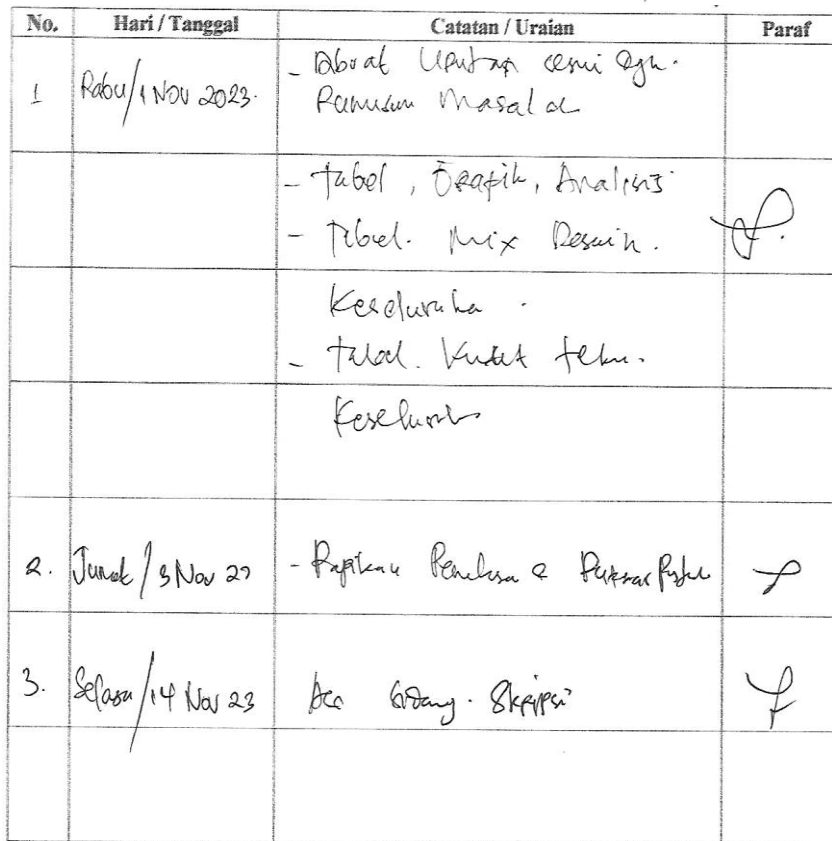 No. Hari / Tanggal Catatan / Uraian Paraf
1 Rabu/1 Nov 2023. - Dibuat Urutan sesuai dgn.
Rumusan Masalah
- tabel, Grafik, Analisis
- tabel. Mix Desain.
Keseluruhan.
- tabel. Kuat tekan.
Keseluruhan
2. Jumat/3 Nov 23 - Rapikan Penulisan & Daftar Pustaka
3. Selasa/14 Nov 23 Acc Sidang. Skripsi